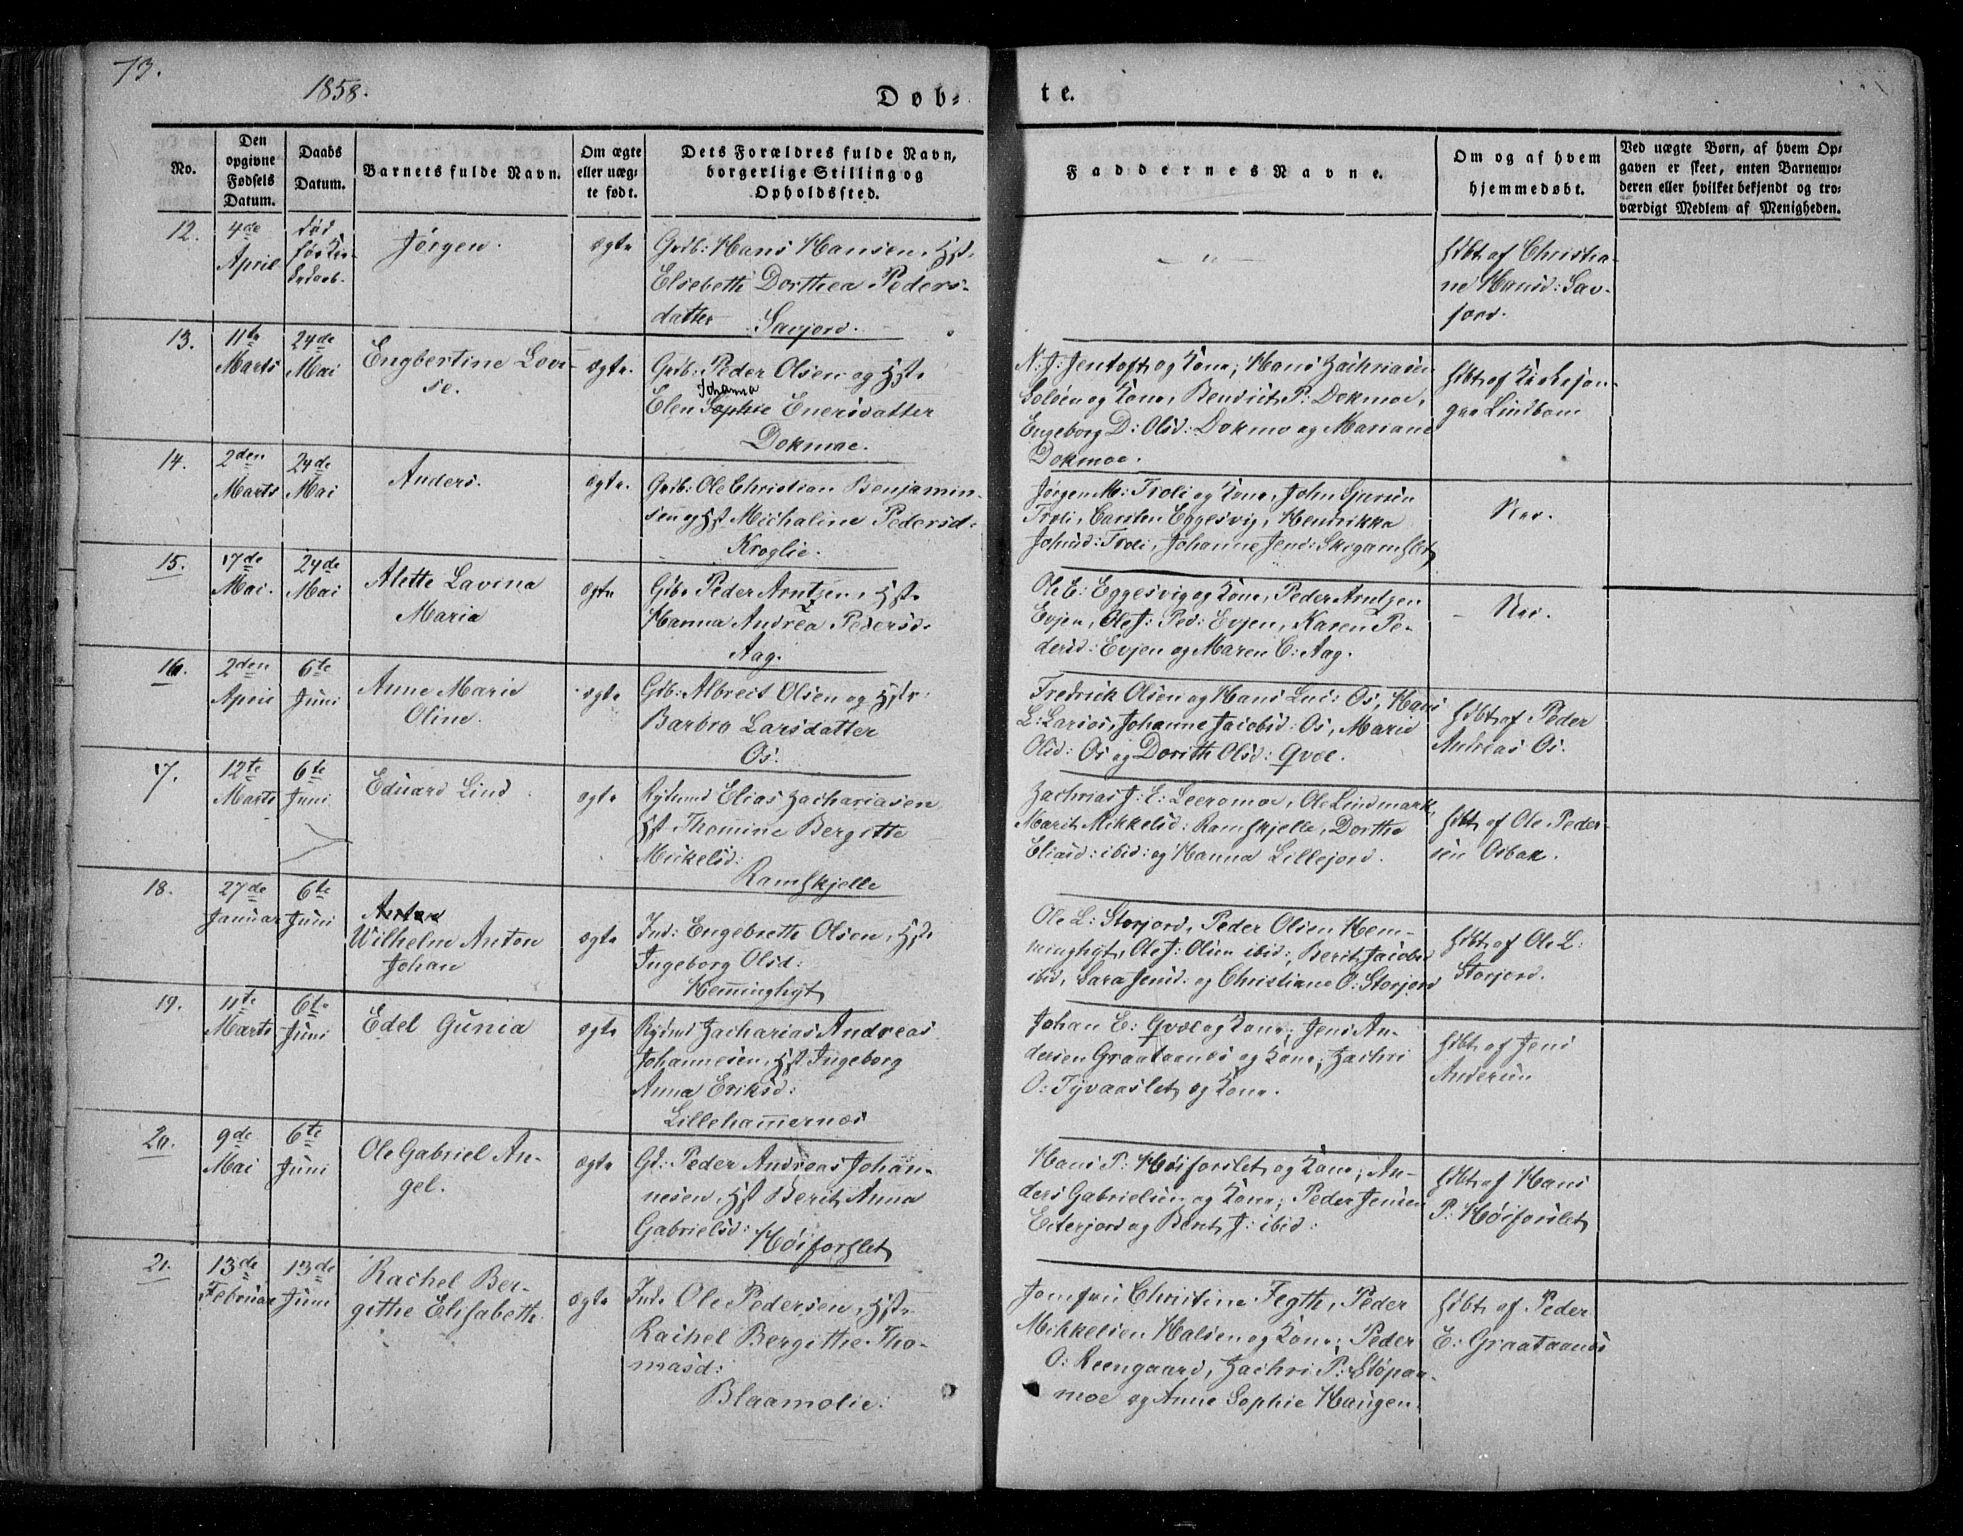 73.
1858.
Døb-
te.
No.
Den opgivne Fødsels Datum.
Daabs Datum.
Barnets fulde Navn.
Om ægte eller uægte født.
Dets Forældres fulde Navn, borgerlige Stilling og Opholdssted.
Faddernes Navne.
Om og af hvem hjemmedøbt.
Ved uægte Børn, af hvem Opgaven er skeet, enten Barnemoderen eller hvilket bekjendt og troværdigt Medlem af Menigheden.
12.
4de
April
død
før
Jørgen.
ægte
Hans Hansen, Hst:
Elsebeth Dorthea Peders-
datter Savjord.
- " -
hdbt af Christia-
ne Hansd: Sav-
jord.
13.
11te
Marts
24de
Mai
Engbertine Lovi-
se.
ægte.
Peder Olsen og Hst:
Johanna
Elen Sophie Enersdatter
Dokmoe.
N: J: Jentoft og Kone, Hans Zachriasen
og Kone, Bendict P: Dokmoe,
Engeborg D: Olsd: Dokmo og Mariane
Dokmoe.
hdbt af
Lindbom
14.
2den
Marts
24de
Mai
Anders.
ægte.
Ole Christian Benjamin-
sen og Hst Michaline Pedersd:
Kroglie.
Jørgen M: Troli og Kone, John
Troli, Carsten Eggesvig, Hendrikka
Johnsd: Troli, Johanne Jensd:
Nei.
15.
17de
Mai.
24de
Mai
Alette Lavina
Maria
ægte
Gdb: Peder Arntzen, Hst:
Hanna Andrea Pedersd:
Aag.
Ole E: Eggesvig og Kone, Peder Arntzen
Evjen, Ole J: Ped: Evjen, Karen Pe-
dersd: Evjen og Maren C: Aag.
- Nei.
16.
2den
April
6te
Juni
Anne Marie
Oline.
ægte
Gdb: Albreit Olsen og Hst:
Barbro Larsdatter
Os.
Fredrik Olsen og Hans Os, Hans
L: Larsos, Johanne Jacobsd: Os, Marie
Olsd: Os og Dorith Olsd: Qvæl.
hdbt af Peder
Andreas Os.
17.
12te
Marts
6te
Juni
Eduard Lind
ægte
Rydsmd Elias Zachariasen
Hst Thomine Bergitte
Mikelsd:
Ramskjelle
Zachrias J: E: Leeromoe, Ole Lindmark,
Marit Mikkelsd: Ramskjelle, Dorthe
Eliasd: ibid: og Hanna Lillejord.
hdbt af Ole Peder-
sen Osbak.
18.
27de
Januar
6te
Juni
Anton
Wilhelm Anton
Johan
ægte
Ind: Engebreth Olsen, Hst:
Ingeborg Olsd:
Hemminghyt
Ole L: Storjord, Peder Olsen Hem-
minghyt, Ole J: Olsen ibid:, Berit Jacobsd
ibid, Sara Jensd: og Christiane O: Storjord
hdbt af Ole L:
Storjord.
19.
11te
Marts
6te
Juni
Edel Gunia
ægte
Rydsmd Zacharias Andreas
Johannesen, Hst Ingeborg
Anna Eriksd:
Lillehammernæs
Johan E: Qvæl og Kone, Jens An-
dersen Graataanæs og Kone, Zachri
O: Tyvaaslet og Kone.
hdbt af Jens
Andersen
20.
9de
Mai
6te
Juni
Ole Gabriel An-
gel.
ægte
Gd: Peder Andreas Johan-
nesen, Hst Berit Anna
Gabrielsd: Høiforslet
Hans P: Høiforslet og Kone, An-
ders Gabrielsen og Kone, Peder Jensen
Eiterjord og Berit J: ibid:
hdbt af Hans
P: Høiforslet
21.
13de
Februar
13de
Juni
Rachel Ber-
githe Elisabeth
ægte
Ind: Ole Pedersen, Hst:
Rachel Bergitthe Tho-
masd:
Blaamolie.
Jomfru Christine Fegth, Peder
Mikkelsen Halsen og Kone, Peder
O: Reengaard, Zachri P: Støpaa-
moe og Anne Sophie Haugen.
hdbt af Peder
E: Graataanæs